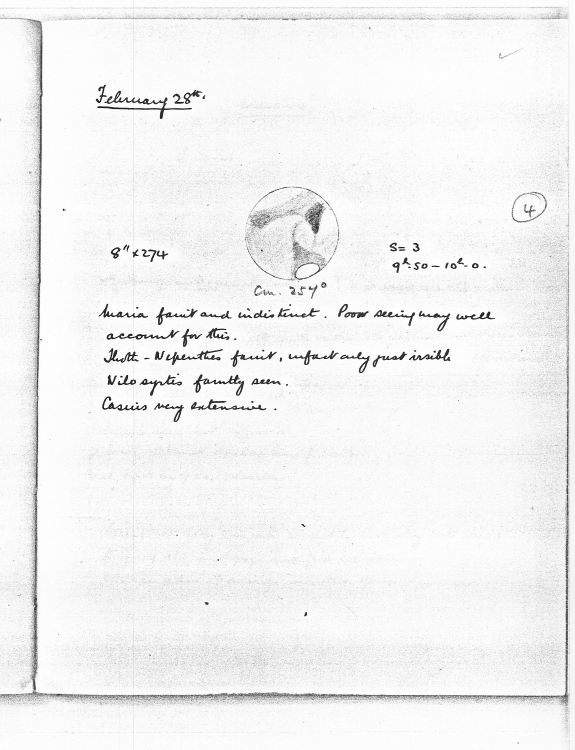 February 28th.
4
8" x 274
S= 3
9h-50 – 10h-0.
Cm. 254°
Maria faint and indistinct. Poor seeing may well
account for this.
Thoth - Nepenthes faint, infact only just visible
Nilosyrtis faintly seen.
Casius very extensive.